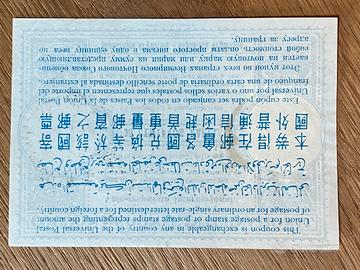 This coupon is exchangeable in any country of the Universal Postal
Union for a postage stamp or postage stamps representing the amount
of postage for an ordinary single-rate letter destined for a foreign country.
本券得在郵會各國兌換等於該國寄
國外普通信函起首重量郵資之郵票
Este cupón podrá ser canjeado en todos los Países de la Unión Postal
Universal por uno o varios sellos postales que representen el importe del
franqueo de una carta ordinaria de porte sencillo destinada al extranjero.
Этот купон во всех странах Всемирного Почтового Союза обмени-
вается на почтовую марку или марки на сумму представляющую
собой стоимость оплаты простого письма в одну единицу веса по
адресу за границу.